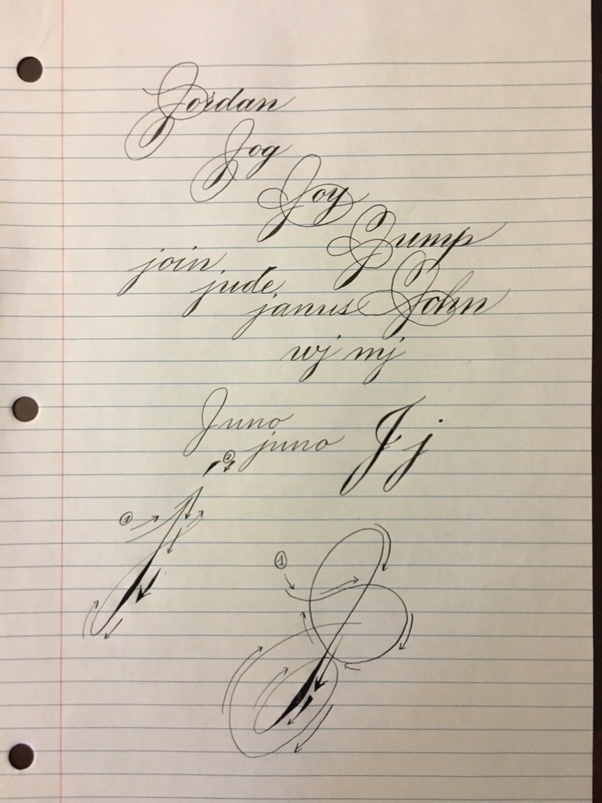 Jordan
Jog
Joy
Jump
join
jude
janus John
wj mj
Juno
juno
J j
2
1
1